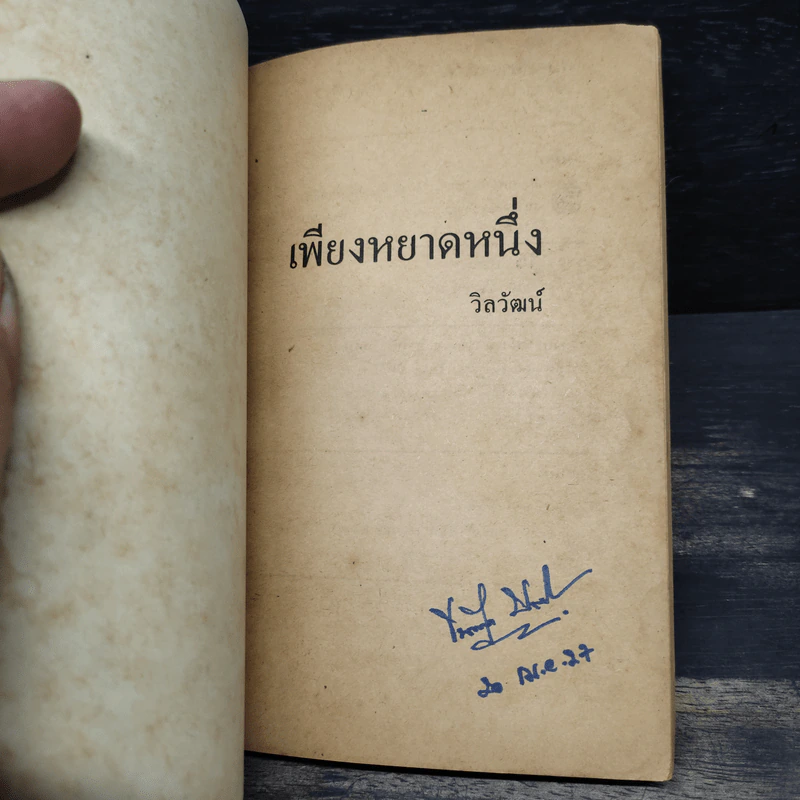 เพียงหยาดหนึ่ง
วิลวัฒน์
๒๐ เม.ย. 27